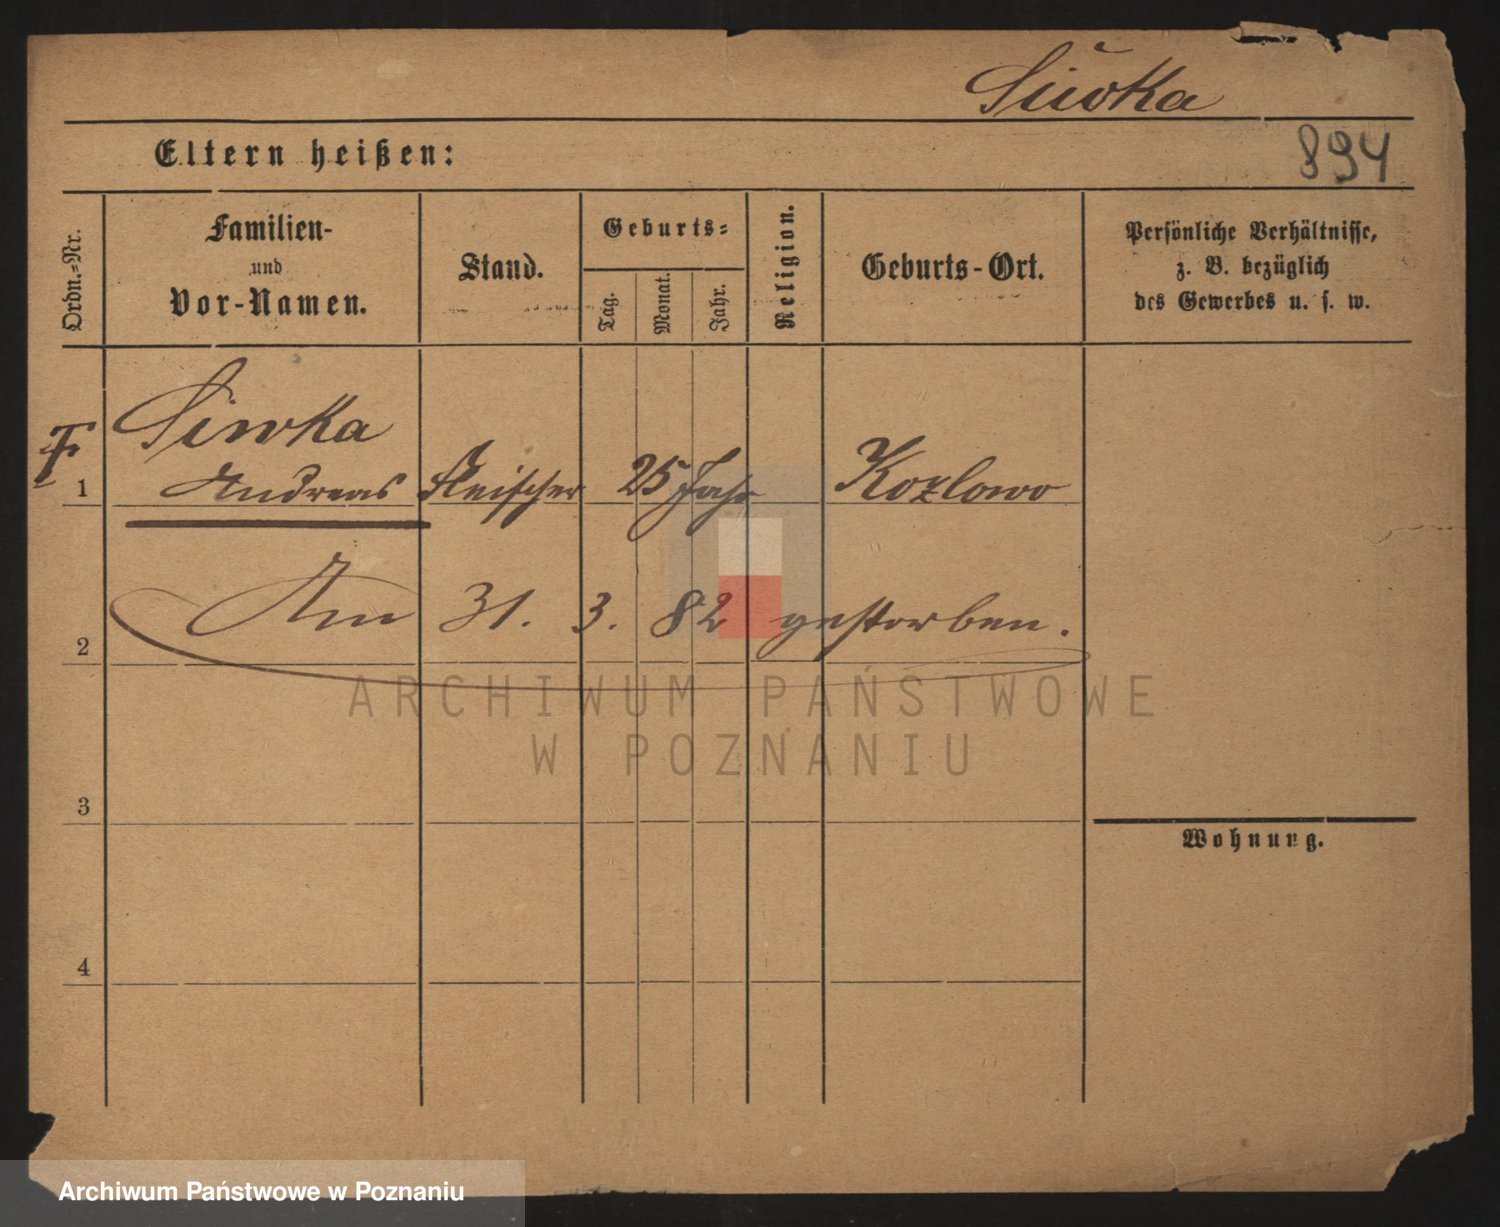 Siwka
Eltern heißen:
894
Ordn.=Nr.
Familien-
und
Vor-Namen.
Stand.
Geburts=
Tag.
Monat.
Jahr.
Religion.
Geburts-Ort.
Persönliche Verhältnisse,
z. B. bezüglich
des Gewerbes u. s. w.
Siwka
1 Andreas Fleischer 25 Jahr Kozlowo
2 Am 31. 3. 82 gestorben.
ARCHIWUM PAŃSTWOWE
W POZNANIU
3
Wohnung.
4
Archiwum Państwowe w Poznaniu